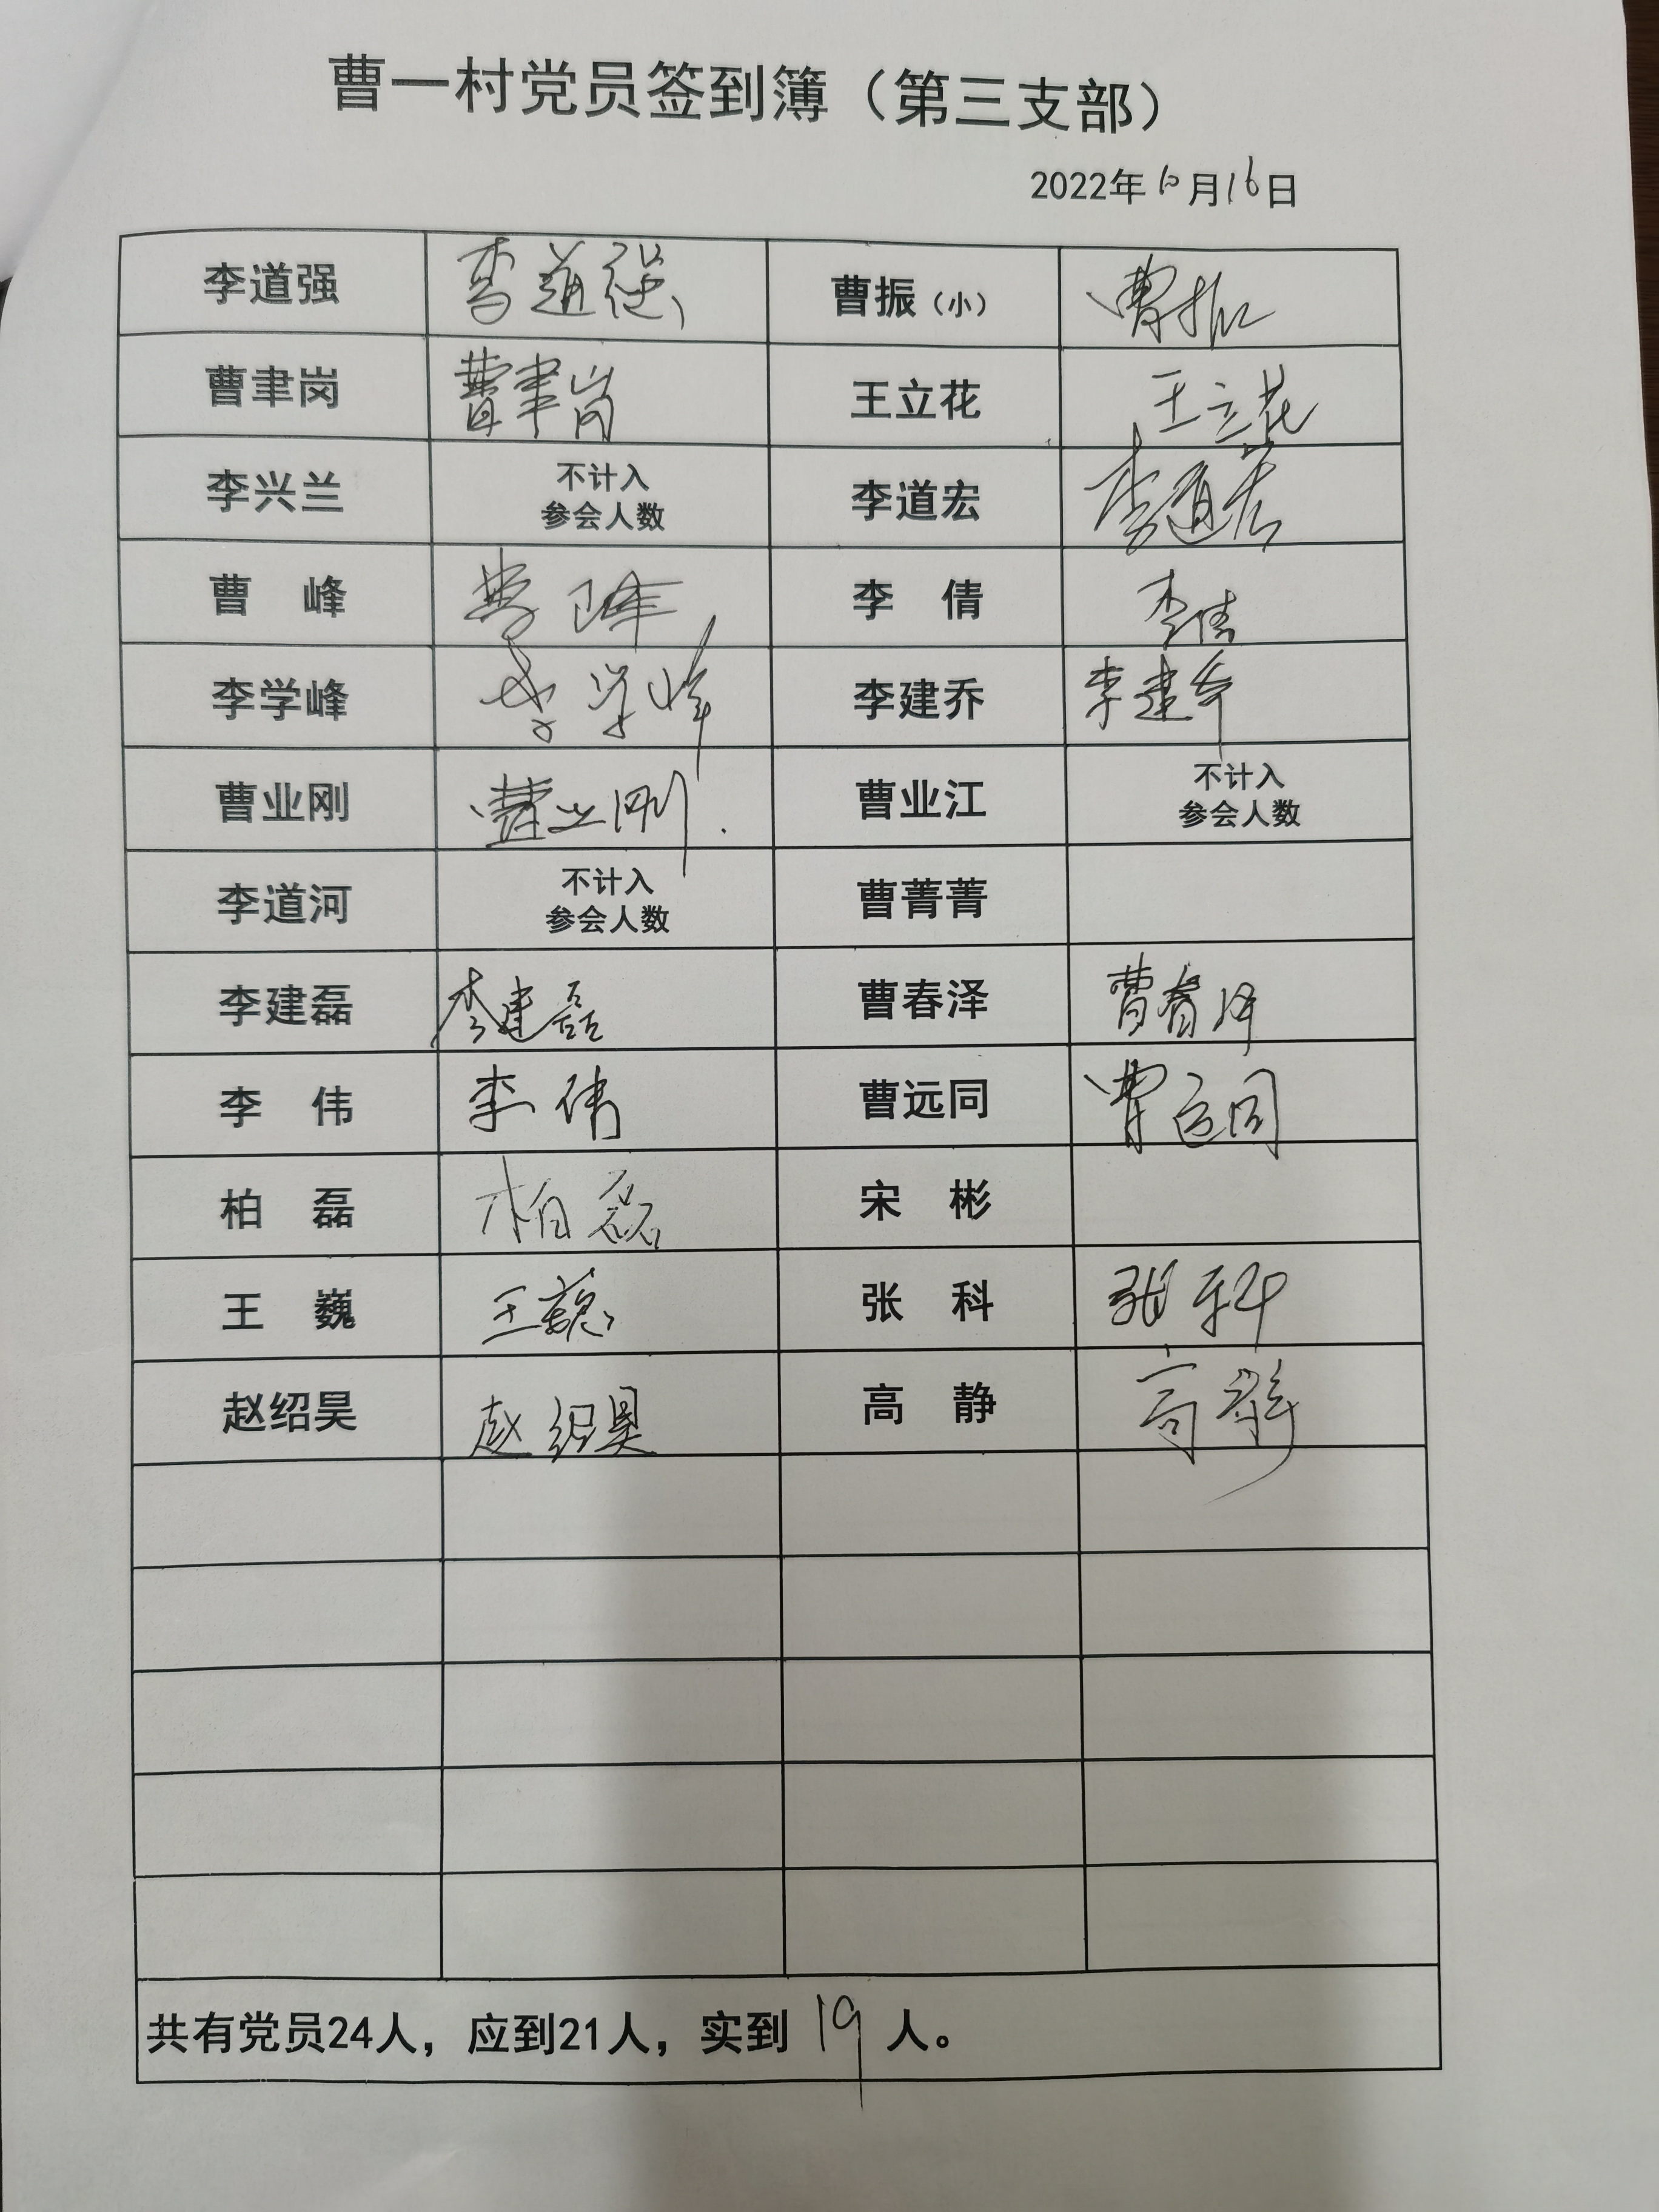 曹一村党员签到簿（第三支部）
2022年10月16日
李道强 李道强 曹振（小） 曹振
曹聿岗 曹聿岗 王立花 王立花
李兴兰 不计入 李道宏 李道宏
参会人数
曹 峰 曹峰 李 倩 李倩
李学峰 李学峰 李建乔 李建乔
曹业刚 曹业刚 曹业江 不计入
参会人数
李道河 不计入 曹菁菁
参会人数
李建磊 李建磊 曹春泽 曹春泽
李 伟 李伟 曹远同 曹远同
柏 磊 柏磊 宋 彬
王 巍 王巍 张 科 张科
赵绍昊 赵绍昊 高 静 高静
共有党员24人，应到21人，实到 19 人。